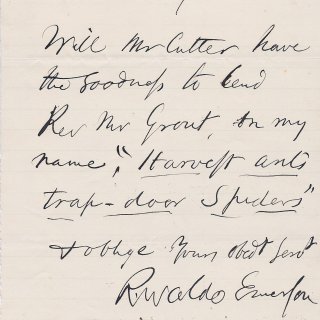 Will Mr Cutter have
the goodness to lend
Rev Mr Grout, in my
name, "Harvest ants
trap-door Spiders"
& oblige Yours obedt Servt
R. Waldo Emerson